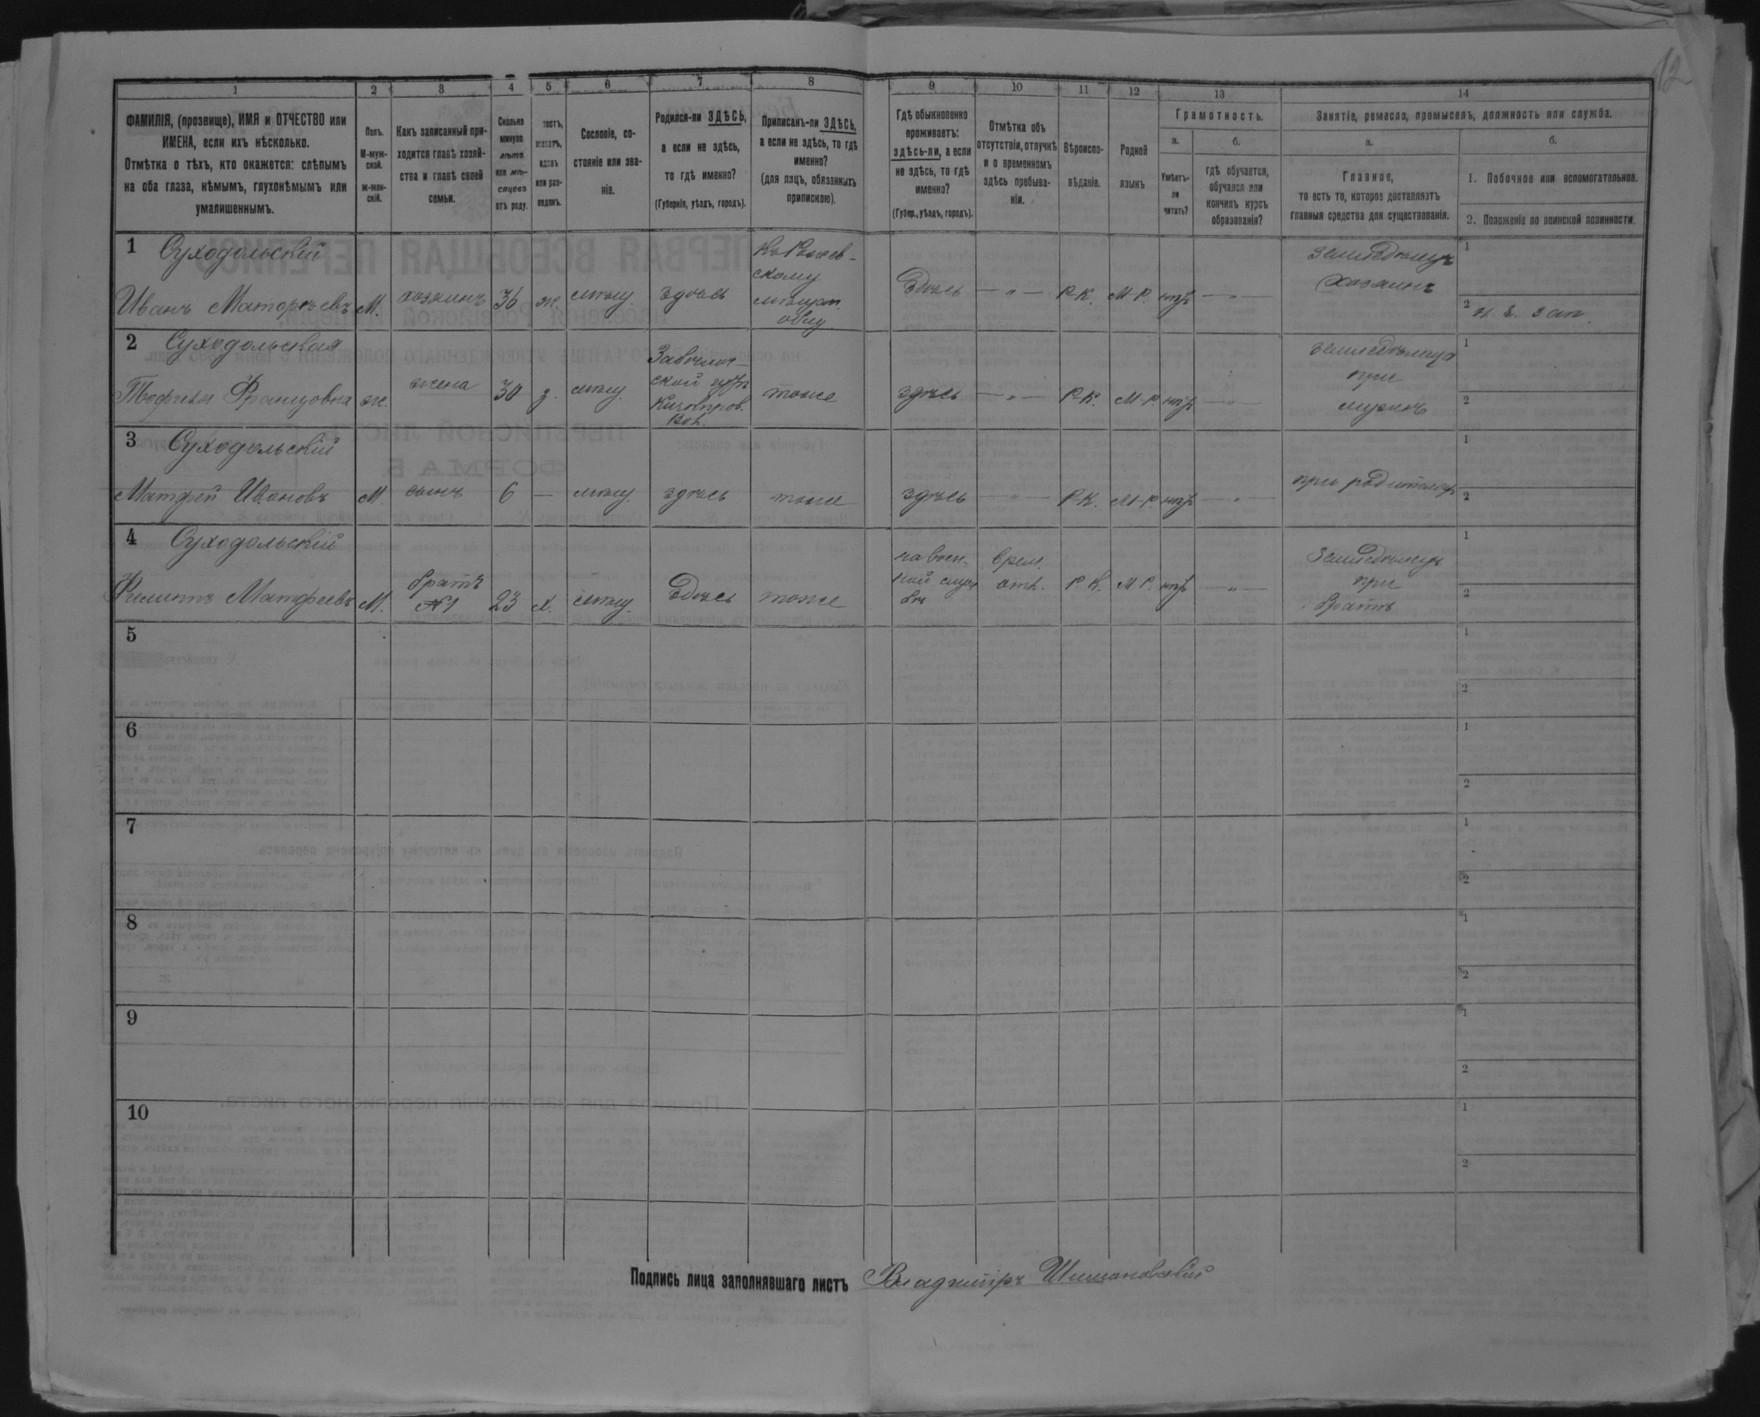 12
1 2 3 4 5 6 7 8 9 10 11 12 13 14
ФАМИЛІЯ, (прозвище), ИМЯ и ОТЧЕСТВО или ИМЕНА, если ихъ нѣсколько.
Отмѣтка о тѣхъ, кто окажется: слѣпымъ на оба глаза, нѣмымъ, глухонѣмымъ или умалишеннымъ.
Полъ.
М-муж-
ской.
Ж-жен-
скій.
Какъ записанный при-
ходится главѣ хозяй-
ства и главѣ своей
семьи.
Сколько
минуло
лѣтъ
или мѣ-
сяцевъ
отъ роду.
вдовъ
или раз-
веденъ.
Сословіе, со-
стояніе или зва-
ніе.
Родился-ли ЗДѢСЬ,
а если не здѣсь,
то гдѣ именно?
(Губернія, уѣздъ, городъ).
Приписанъ-ли ЗДѢСЬ,
а если не здѣсь, то гдѣ
именно?
(для лицъ, обязанныхъ
припискою).
Гдѣ обыкновенно
проживаетъ:
здѣсь-ли, а если
не здѣсь, то гдѣ
именно?
(Губер., уѣздъ, городъ).
Отмѣтка объ
отсутствіи, отлучкѣ
и о временномъ
здѣсь пребыва-
ніи.
Вѣроиспо-
вѣданіе.
Родной
языкъ
Грамотность.
а.
Умѣетъ-
ли
читать?
б.
гдѣ обучается,
обучался или
кончилъ курсъ
образованія?
Занятіе, ремесло, промыселъ, должность или служба.
а.
Главное,
то есть то, которое доставляетъ
главныя средства для существованія.
б.
1. Побочное или вспомогательное.
2. Положеніе по воинской повинности.
1 Суходольскій
Иванъ М. хозяинъ 36 ж. мѣщ. здѣсь
скому
Здѣсь — „ — Р.К. М.Р. — „ —
Хозяинъ
1
2
2 Суходольская
Францовна ж. жена 30 з. мѣщ.
тоже здѣсь — „ — Р.К. М.Р. — „ —
при
мужѣ
1
2
3 Суходольскій
Матфей Ивановъ М. сынъ 6 — мѣщ. здѣсь тоже здѣсь — „ — Р.К. М.Р. — „ — при родителяхъ
1
2
4 Суходольскій
Филиппъ Матфеевъ М. братъ
№1 23 х. мѣщ. Здѣсь тоже
на воен-
ной служ
бѣ
врем.
отл. Р.К. М.Р. — „ —
при
братѣ
1
2
5
1
2
6
1
2
7
1
2
8
1
2
9
1
2
10
1
2
Подпись лица заполнявшаго листъ Владиміръ Шимановскій